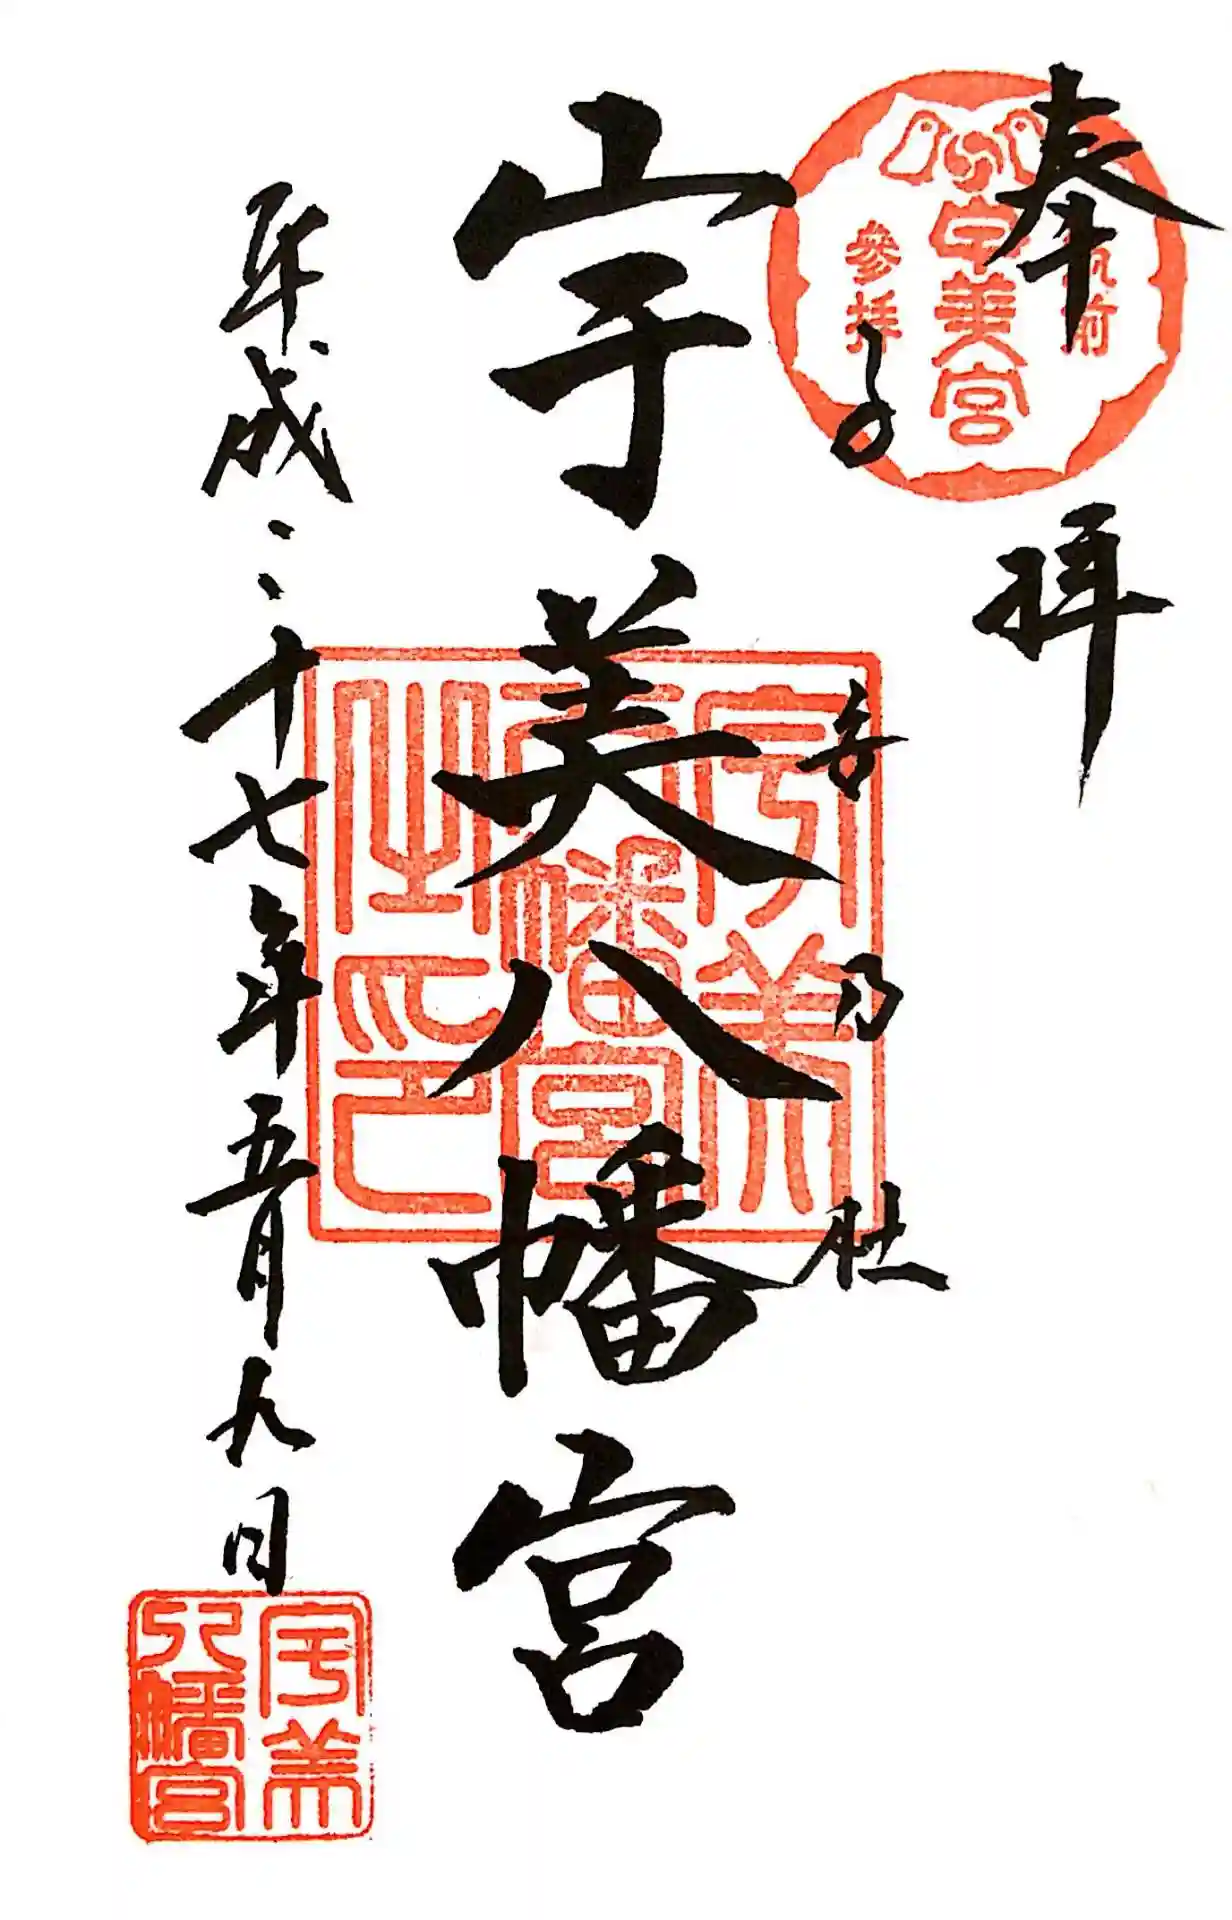 奉拝
筑前
宇美宮
參拝
子安乃社
宇美八幡宮
宇美
八幡宮
之印
平成二十七年五月九日
宇美
八幡宮